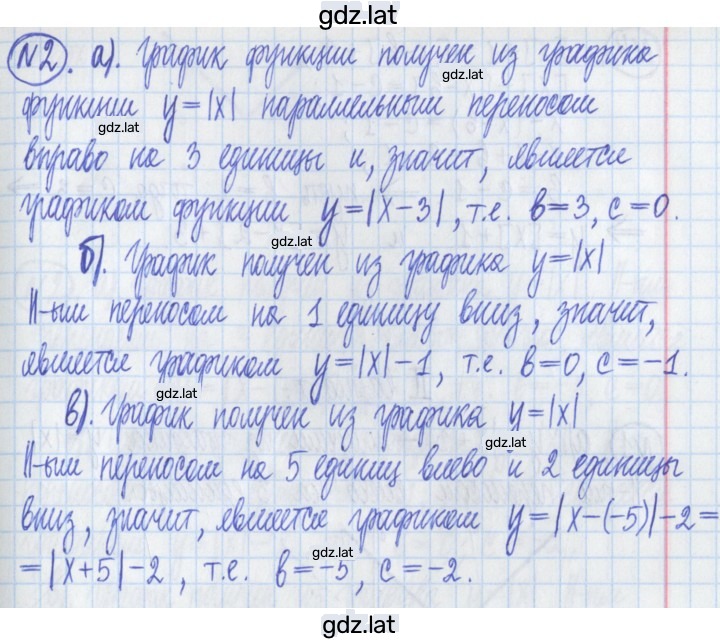 gdz.lat
№2. а). График функции получен из графика
gdz.lat
функции y=|x| параллельным переносом
gdz.lat
вправо на 3 единицы и, значит, является
графиком функции y=|x-3|, т.е. в=3, с=0.
gdz.lat
б). График получен из графика y=|x|
II-ым переносом на 1 единицу вниз, значит,
является графиком y=|x|-1, т.е. в=0, с=-1.
gdz.lat
в). График получен из графика y=|x|
gdz.lat
II-ым переносом на 5 единиц влево и 2 единицы
вниз, значит, является графиком y=|x-(-5)|-2=
gdz.lat
=|x+5|-2, т.е. в=-5, с=-2.
gdz.lat